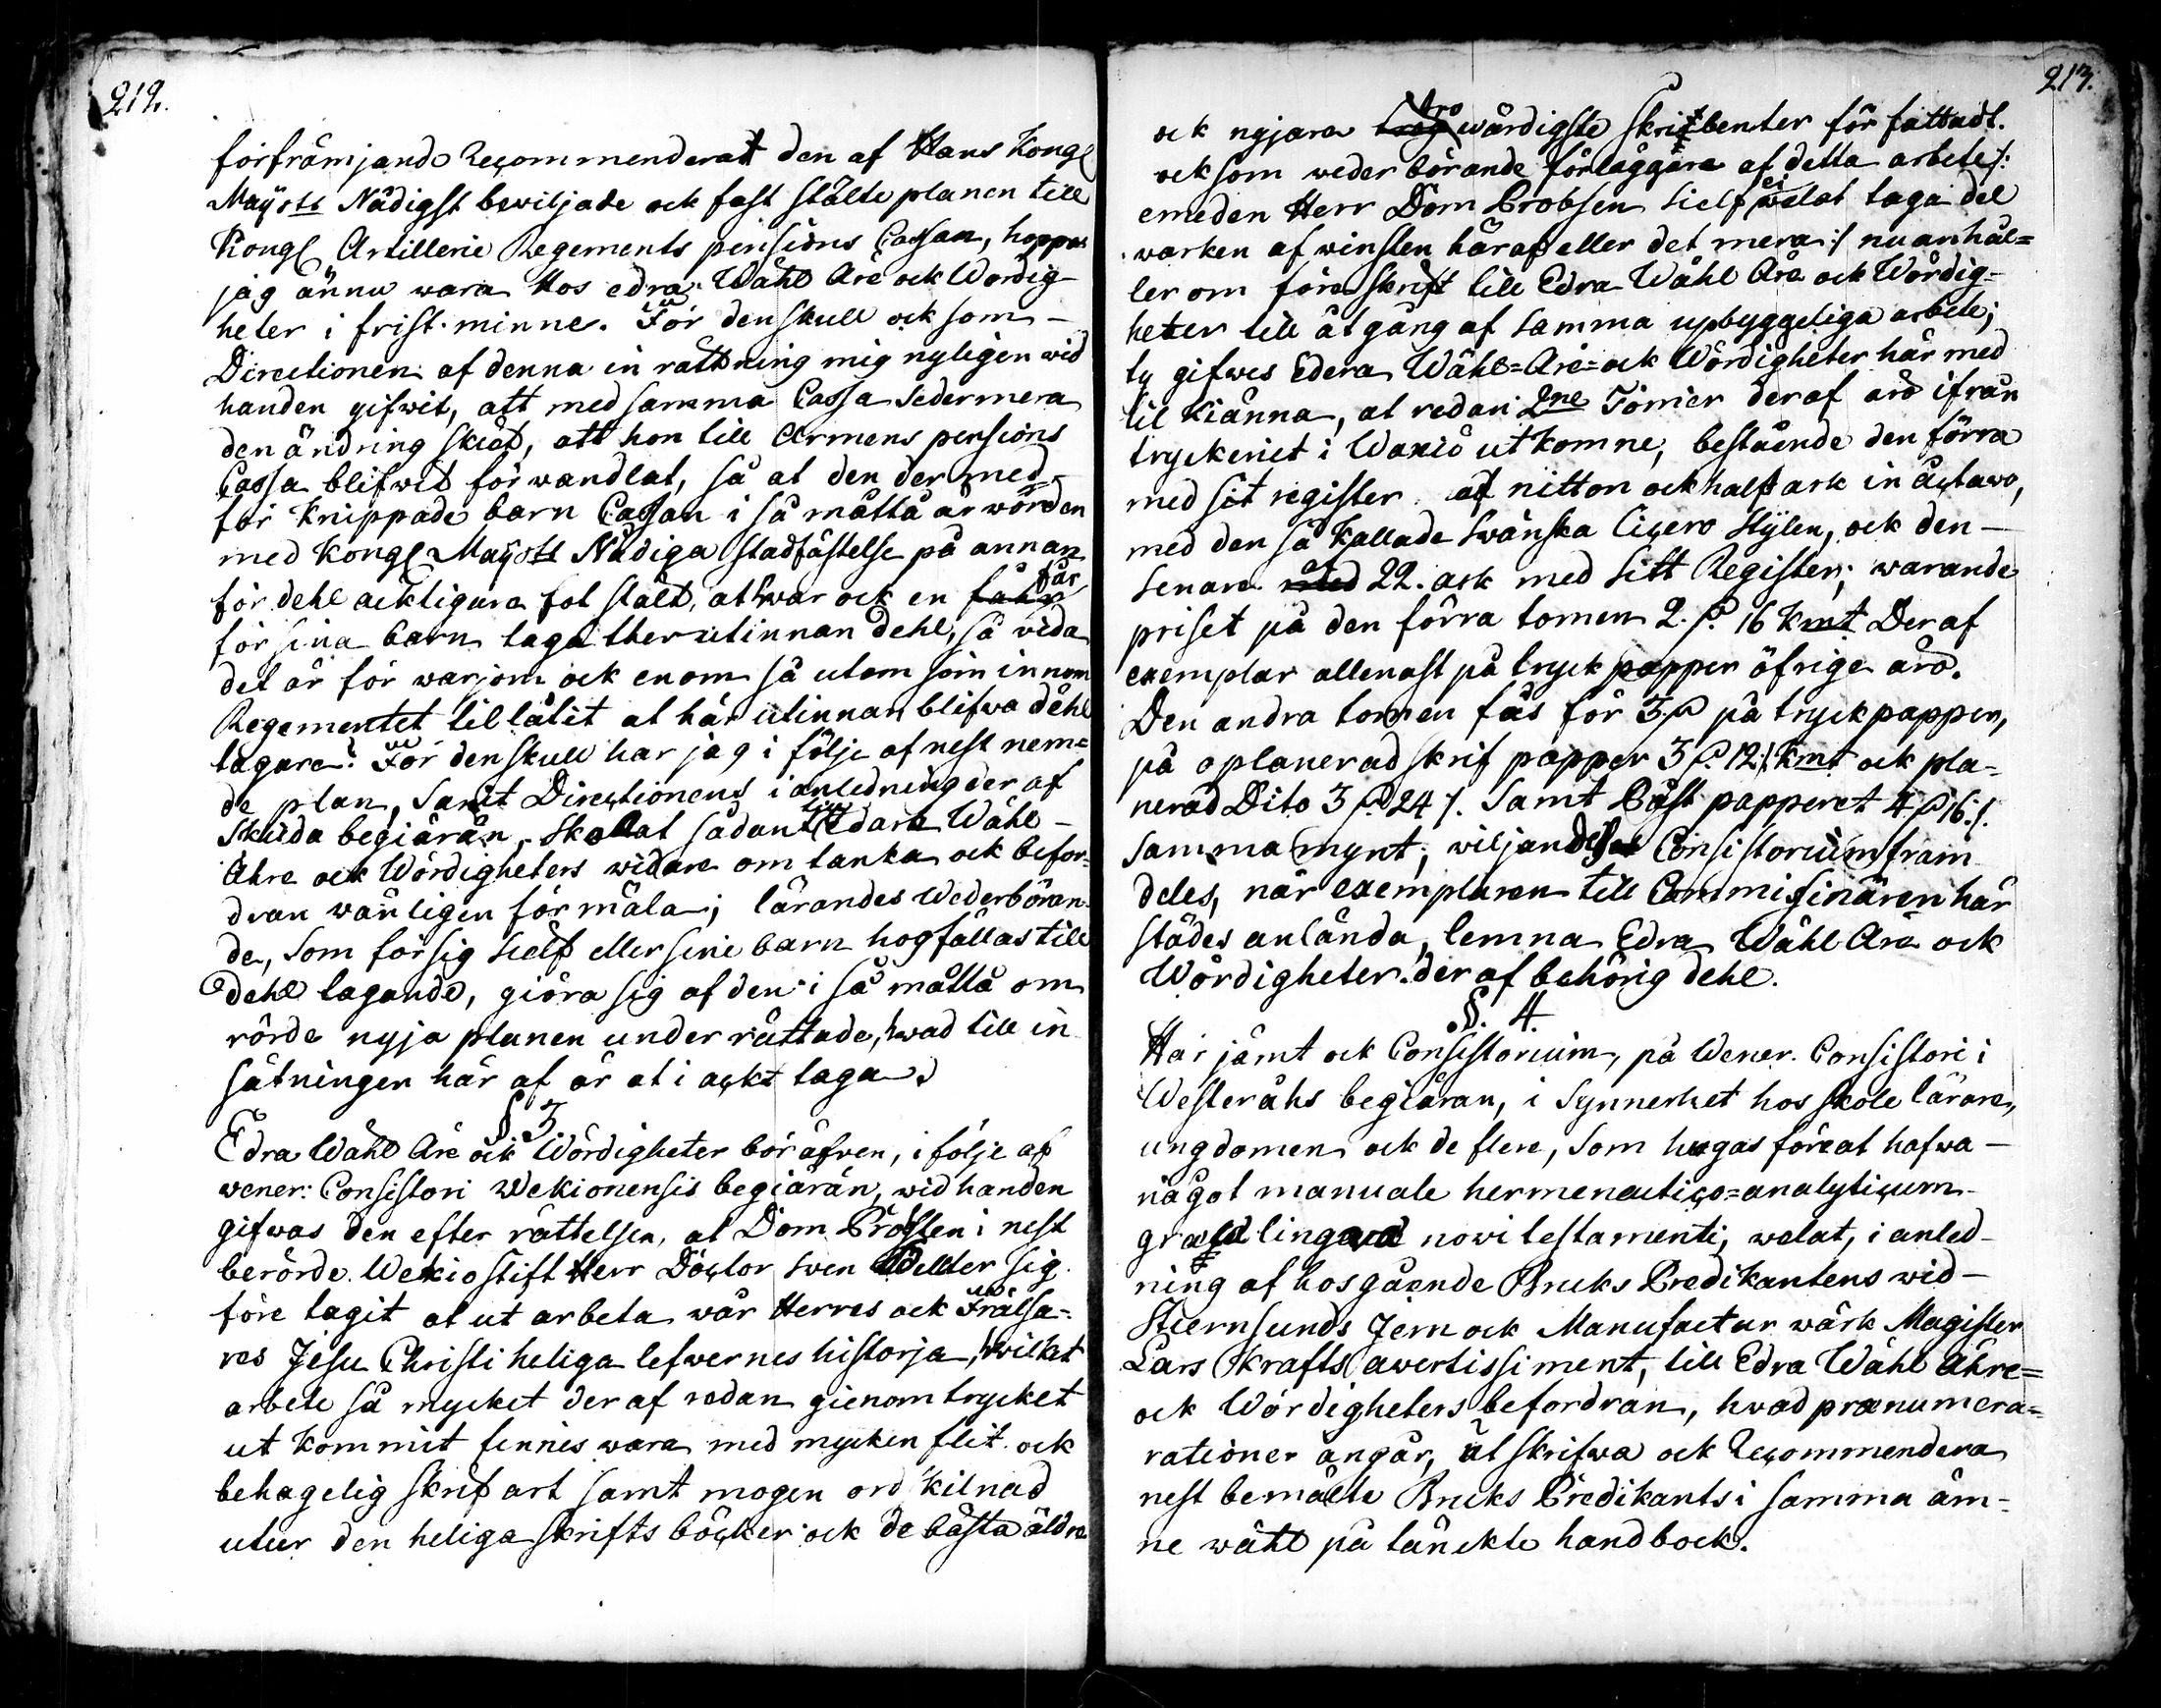 212.
förfrämjande Recommenderat den af Hans Kongl
Maÿsts Nådigst bewiljade ock fast stälte planen till
Kongl Artillerie Regements pensions Cassan, hoppas
jag ännu wara Hos edra Wähl Äre ock Wördig
heter i frist minne. För den skull ock som –
Directionen af denna in rättning mig nyligen wid
handen gifwit, att med samma Cassa Sedermera
den ändring skiet, att hon till Armens pensions
Cassa blifwit förwandlat, så at den der med
för knippade barn Cassan i så måtta är worden
med Kongl Maÿsts Nådiga stadfästelse på annan
för dehl acktigare fot stält, at hwar ock en får
för sina barn taga ther utinnan dehl, så vida
det är för warjom ock enom så utom som innom
Regementet tillåtit at här utinnan blifwa dehl
tagare. För den skull har jag i följe af nest nem=
de plan, samt Directionens i anledning der af
skiedda begiäran, skolat sådant till Edara Wähl –
Ähre ock Wördigheters widare om tanka ock befor=
dran wänligen för mäla; lärandes Wederböran
de, Som för sig sielf eller sine barn hogfällas till
dehl tagande, giöra sig af den i så måtta om
rörde nyja planen under rättade, hwad till in
sätningen här af är at i ackt taga.
§ 3.
Edra Wähl Äre ock Wördigheter bör äfven, i följe af
vener: Consistori Wekionensis begiäran, wid handen
gifwas den efter rättelsen, at Dom Probsten i nest
berörde Wekio stift Herr Doctor Swen Wellter sig
före tagit at ut arbeta wår Herres ock Frälsa=
res Jesu Christi heliga lefwernes historja, hwilket
arbete så mycket der af redan gienom trycket
ut kommit finnes wara med mycken flit ock
behagelig skrif art samt mogen ord kilnad
utur den heliga skrifts böcker ock de bästa äldre
213.
ock nyjara tro wärdigste skribenter för fattadt.
ock som weder börande förläggare af detta arbete /:
emedan Herr Dom Probsen sielf ei welat taga del
warken af winsten häraf eller det mera :/ nu anhål=
ler om före skrift till Edra Wähl Äre ock Wördig=
heter till åt gång af samma upbyggeliga arbete;
ty gifwes Edera Wähl=Äre=ock Wördigheter här med
til kiänna, at redan 2ne Tomer deraf äro ifrån
tryckeriet i Wexiö ut komne, bestående den förra
med sit register af nitton ock half ark in äctawo,
med den så kallade Swänska Cicero Stÿlen, ock den –
senare å 22. ark med sitt Register; warande
priset på den förra tomen 2. p. 16 kmt Der af
exemplar allenast på tryck papper öfrige äro.
Den andra tomen fås för 3. p på tryck papper,
på oplanerad skrif papper 3 p. 12 /. kmt ock pla=
nerad Dito 3 p. 24 /. Samt Påst papperet 4. p 16 /.
Samma mynt; wiljandes Consistorium fram
deles, när exemplaren till Commissinären här
städes anlända, lemna Edra Wähl Äre ock
Wördigheter der af behörig dehl.
§. 4.
Här jämt ock Consistorium, på Wener. Consistori i
Westerähs begiäran, i Synnerhet hos skole lärare,
ungdomen ock de flere, som hugas före at hafwa –
något manuale hermeneutico=analyticum
linguæ nowi testamenti, welat, i anled-
ning af hosgående Bruks Predikantens wid –
Stiernsunds Jern ock Manufactur wärk Magister
Lars Krafts awertissiment, till Edra Wähl Ähre=
ock Wördigheters befordran, hwad prænumera=
rationer angår, åt skrifwa ock Recommendera
nest bemälte Bruks Predikants i samma äm=
ne wähl på tänckte handbock.